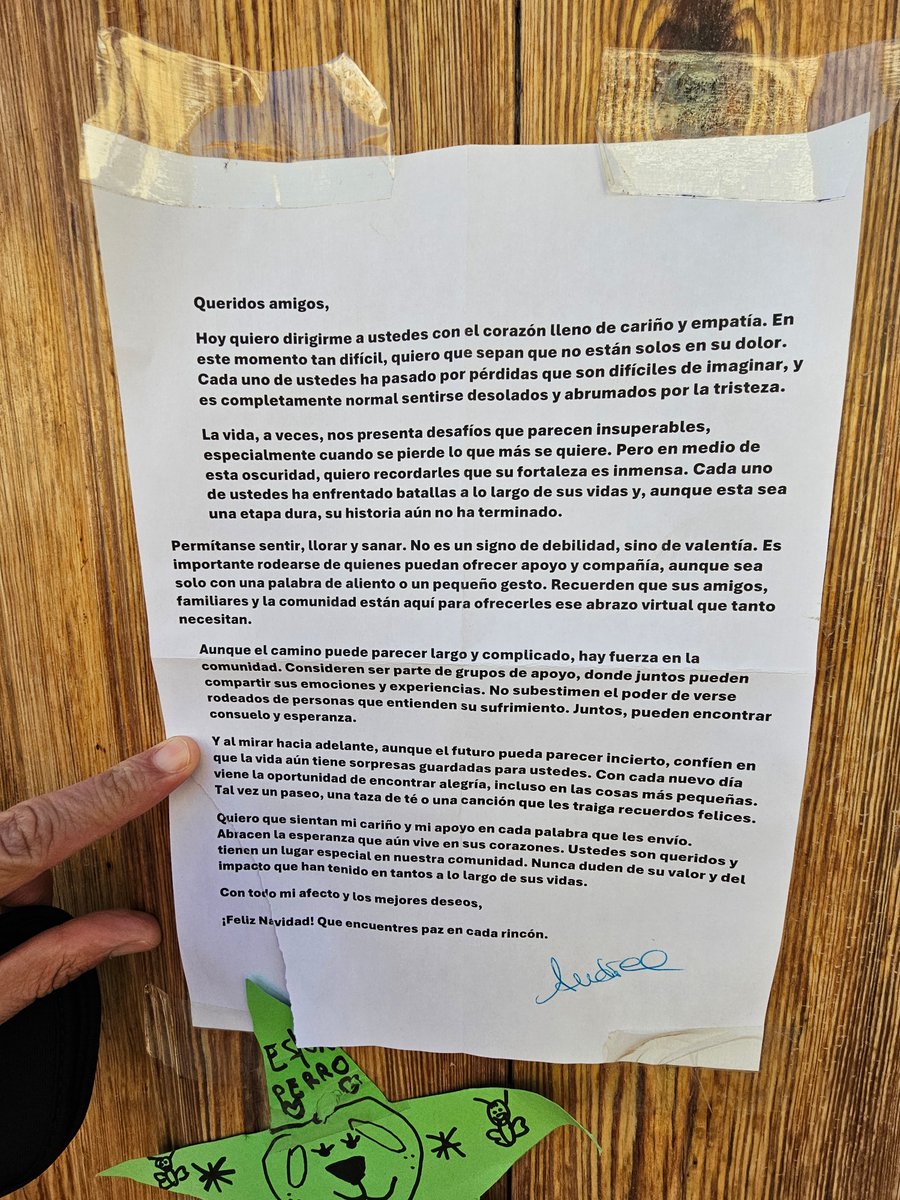 Queridos amigos,
Hoy quiero dirigirme a ustedes con el corazón lleno de cariño y empatía. En
este momento tan difícil, quiero que sepan que no están solos en su dolor.
Cada uno de ustedes ha pasado por pérdidas que son difíciles de imaginar, y
es completamente normal sentirse desolados y abrumados por la tristeza.
La vida, a veces, nos presenta desafíos que parecen insuperables,
especialmente cuando se pierde lo que más se quiere. Pero en medio de
esta oscuridad, quiero recordarles que su fortaleza es inmensa. Cada uno
de ustedes ha enfrentado batallas a lo largo de sus vidas y, aunque esta sea
una etapa dura, su historia aún no ha terminado.
Permítanse sentir, llorar y sanar. No es un signo de debilidad, sino de valentía. Es
importante rodearse de quienes puedan ofrecer apoyo y compañía, aunque sea
solo con una palabra de aliento o un pequeño gesto. Recuerden que sus amigos,
familiares y la comunidad están aquí para ofrecerles ese abrazo virtual que tanto
necesitan.
Aunque el camino puede parecer largo y complicado, hay fuerza en la
comunidad. Consideren ser parte de grupos de apoyo, donde juntos pueden
compartir sus emociones y experiencias. No subestimen el poder de verse
rodeados de personas que entienden su sufrimiento. Juntos, pueden encontrar
consuelo y esperanza.
Y al mirar hacia adelante, aunque el futuro pueda parecer incierto, confíen en
que la vida aún tiene sorpresas guardadas para ustedes. Con cada nuevo día
viene la oportunidad de encontrar alegría, incluso en las cosas más pequeñas.
Tal vez un paseo, una taza de té o una canción que les traiga recuerdos felices.
Quiero que sientan mi cariño y mi apoyo en cada palabra que les envío.
Abracen la esperanza que aún vive en sus corazones. Ustedes son queridos y
tienen un lugar especial en nuestra comunidad. Nunca duden de su valor y del
impacto que han tenido en tantos a lo largo de sus vidas.
Con todo mi afecto y los mejores deseos,
¡Feliz Navidad! Que encuentres paz en cada rincón.
PERRO